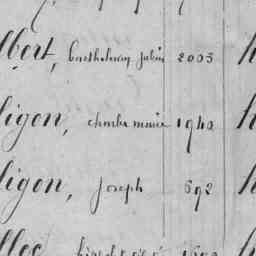 lbert, barthelemy julien 2003 h
ligon, charles marie 1940 h
ligon, Joseph 692 h